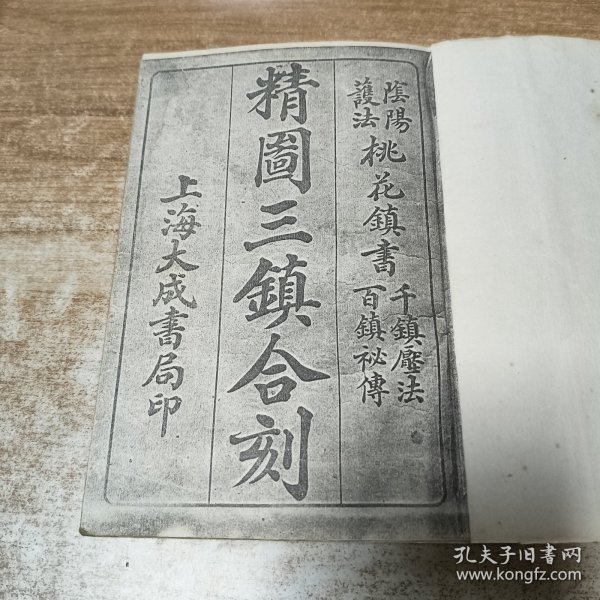 陰陽護法桃花鎮書千鎮壓法百鎮祕傳
精圖三鎮合刻
上海大成書局印
孔夫子旧书网
www.kongfz.com